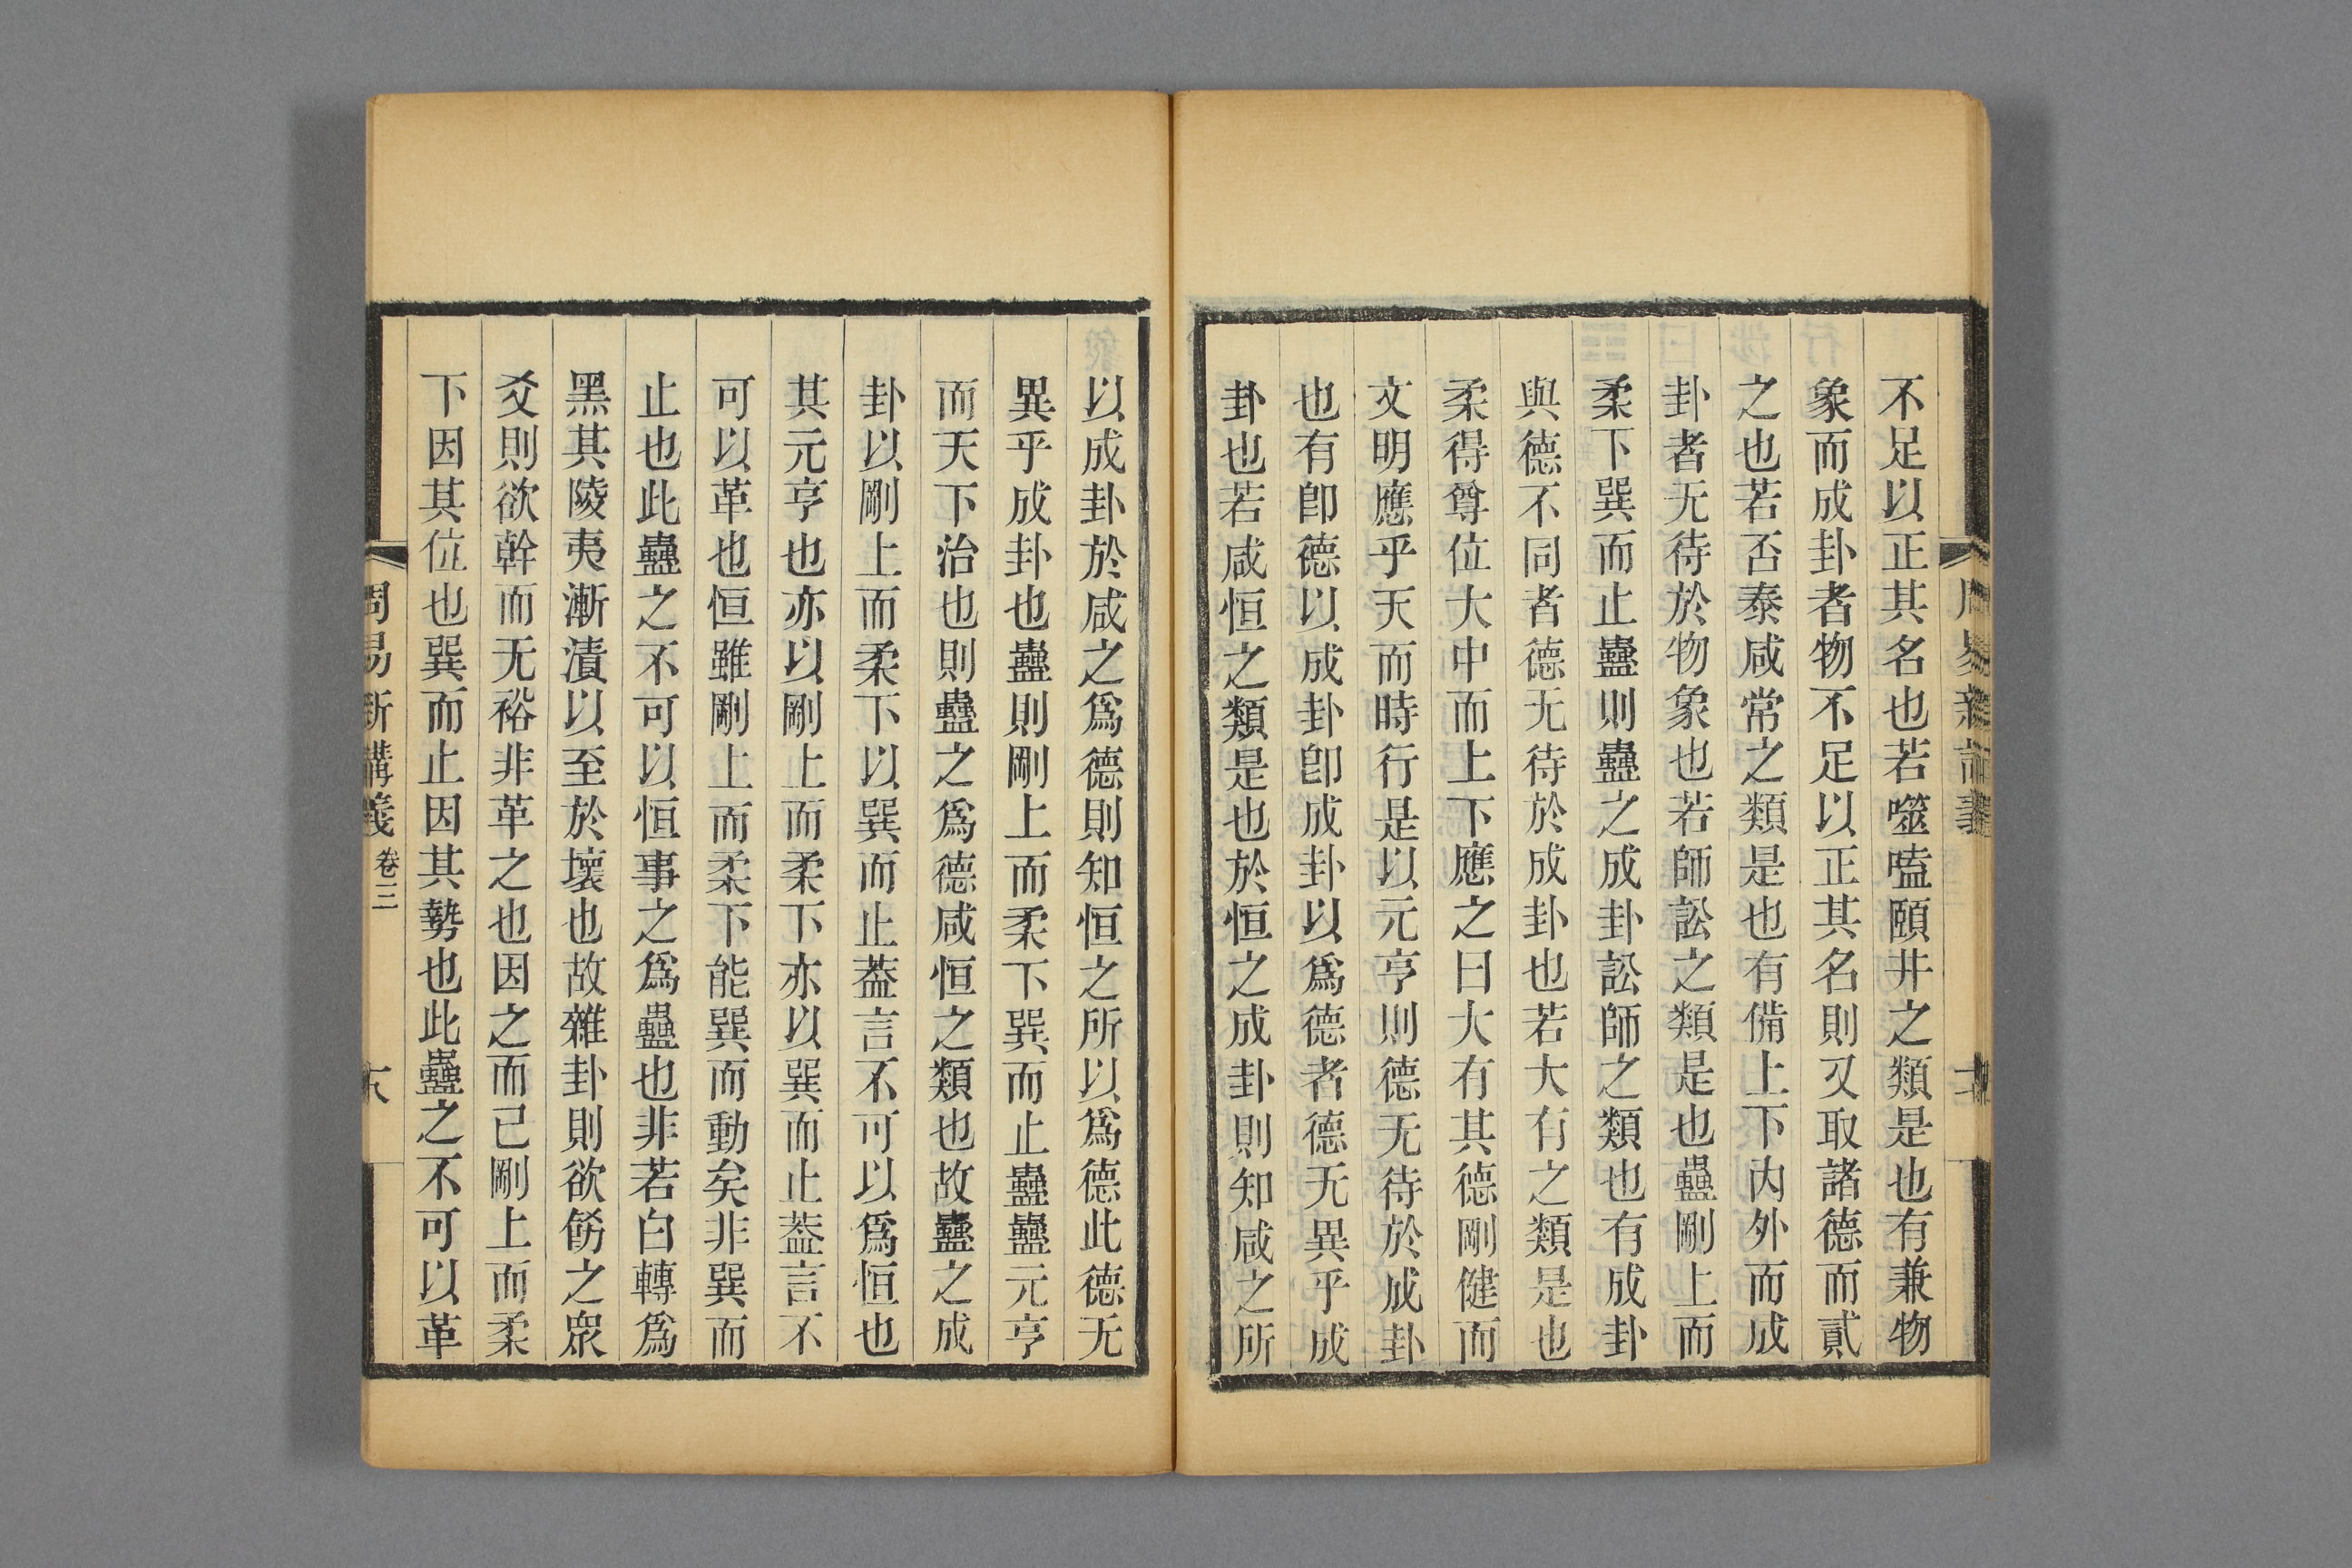 不足以正其名也若噬嗑頤井之類是也有兼物
象而成卦者物不足以正其名則又取諸德而貳
之也若否泰咸常之類是也有備上下內外而成
卦者无待於物象也若師訟之類是也蠱剛上而
柔下巽而止蠱則蠱之成卦訟師之類也有成卦
與德不同者德无待於成卦也若大有之類是也
柔得尊位大中而上下應之曰大有其德剛健而
文明應乎天而時行是以元亨則德无待於成卦
也有卽德以成卦卽成卦以爲德者德无異乎成
卦也若咸恒之類是也於恒之成卦則知咸之所
以成卦於咸之爲德則知恒之所以爲德此德无
異乎成卦也蠱則剛上而柔下巽而止蠱蠱元亨
而天下治也則蠱之爲德咸恒之類也故蠱之成
卦以剛上而柔下以巽而止葢言不可以爲恒也
其元亨也亦以剛上而柔下亦以巽而止葢言不
可以革也恒雖剛上而柔下能巽而動矣非巽而
止也此蠱之不可以恒事之爲蠱也非若白轉爲
黑其陵夷漸漬以至於壞也故雜卦則欲飭之眾
爻則欲幹而无裕非革之也因之而已剛上而柔
下因其位也巽而止因其勢也此蠱之不可以革
周易新講義 卷三